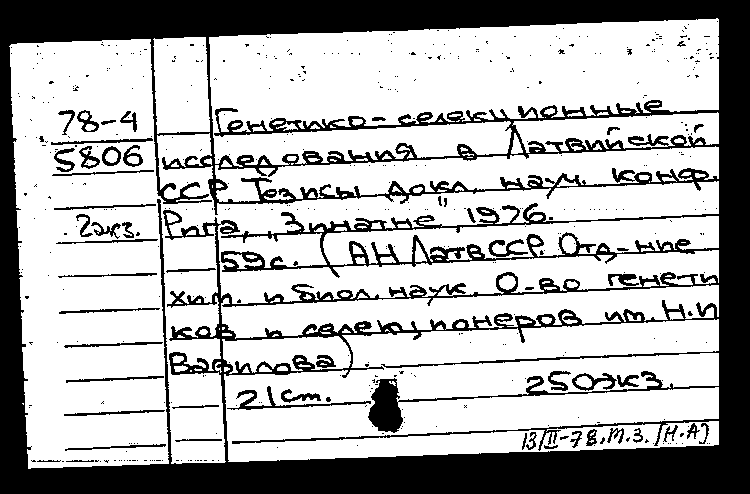 78-4 Генетико-селекционные
5806 исследования в Латвийской
ССР. Тезисы докл. науч. конф.
2экз. Рига, „Зинатне", 1976.
59с. (АН ЛатвССР. Отд-ние
хим. и биол. наук. О-во генети
ков и селекционеров им. Н.И
Вавилова)
21см. 250экз.
13/II-78.м.з. [Н.А]